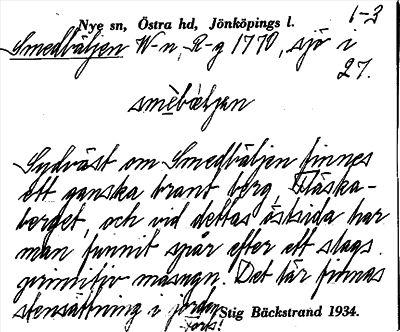 1-3
Nye sn, Östra hd, Jönköpings l.
Smedbäljen W-n, R-g 1770, sjö i
27.
smèbæljan
Sydväst om Smedbäljen finnes
ett ganska brant berg, Fläska-
berget, och vid dettas östsida har
man funnit spår efter ett slags
primitiv masugn. Det här finnas
stensättning i jorden
Stig Bäckstrand 1934.